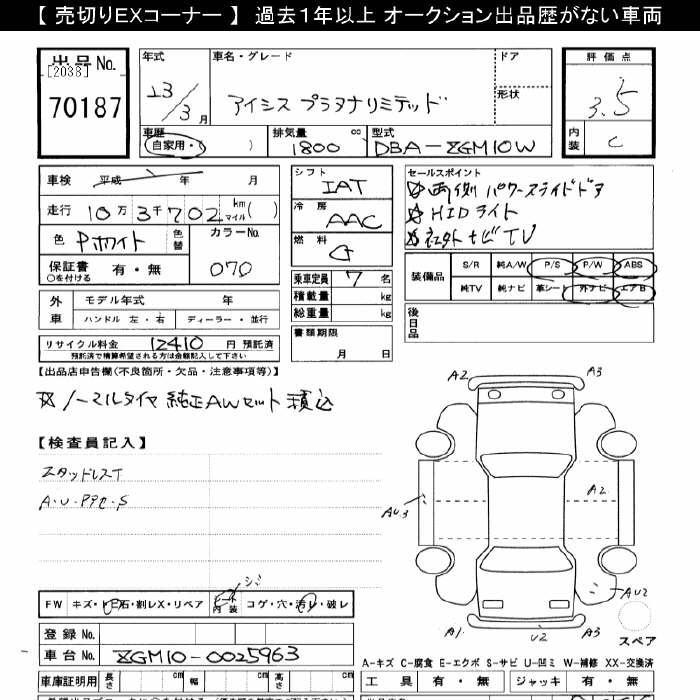 【 売切りEXコーナー 】 過去1年以上 オークション出品歴がない車両
出品No.
[2038]
70187
年式
13/3月
車名・グレード
アイシス プラタナリミテッド
ドア
形状
評価点
3.5
内装
C
車歴
自家用・( )
排気量
1800 cc
型式
DBA-ZGM10W
車検 平成 年 月
走行 10万3千702 km マイル( )
色 Pホワイト 色替
カラーNo.
070
保証書 有・無
○を付ける
シフト
IAT
冷房
AAC
燃料
G
乗車定員 7 名
積載量 kg
総重量 kg
書類期限
月 日
セールスポイント
☆両側パワースライドドア
☆HIDライト
☆社外ナビTV
装備品
S/R 純A/W P/S P/W ABS
純TV 純ナビ 革シート 外ナビ エアB
後日品
外車
モデル年式 年
ハンドル 左・右 ディーラー・並行
リサイクル料金 12410 円 預託済
預託済で精算希望される方は金額記入して下さい
【出品店申告欄(不良箇所・欠品・注意事項等)】
☆ノーマルタイヤ純正AWセット積込
【検査員記入】
スタッドレスT
A・U・Pアセ・S
A2 A3
AU3 A2
AU2
A1 U2 A3
スペア
FW キズ・トビ石・割レX・リペア
シミ
シート内装 コゲ・穴・汚レ・破レ
登録No.
車台No. ZGM10-0025963
A-キズ C-腐食 E-エクボ S-サビ U-凹ミ W-補修 XX-交換済
車庫証明用 長さ cm 幅 cm 高さ cm
工具 有・無 ジャッキ 有・無